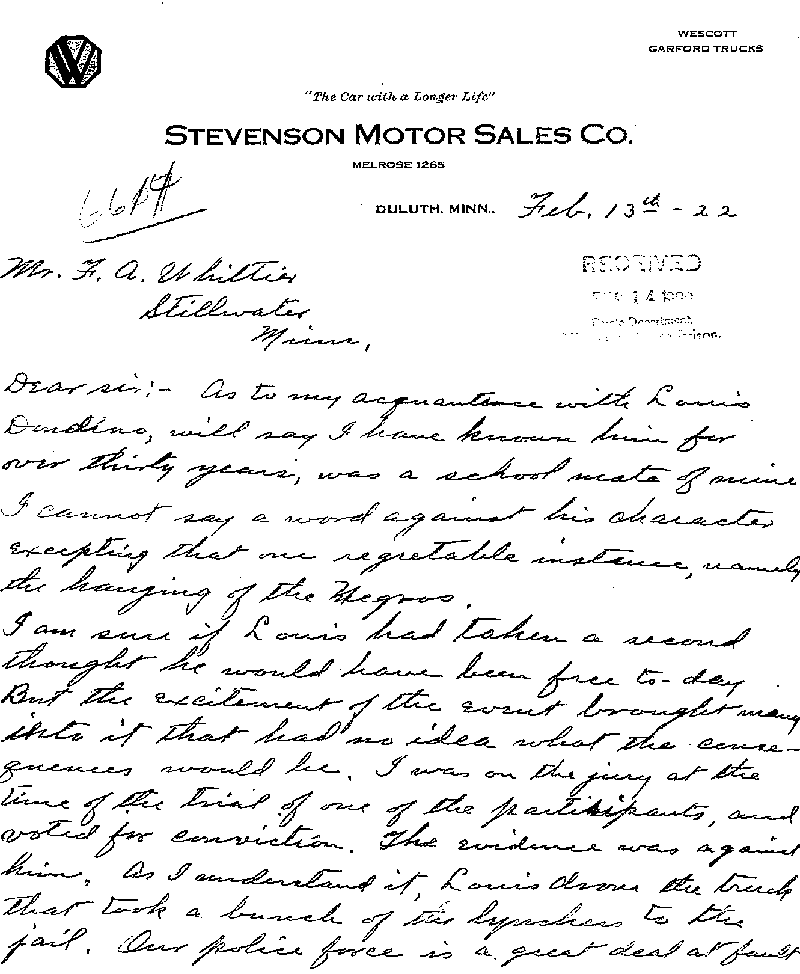 WESCOTT
GARFORD TRUCKS
W
"The Car with a Longer Life"
STEVENSON MOTOR SALES CO.
MELROSE 1265
DULUTH, MINN., Feb. 13th - 22
Mr. F. A. Whittier
Stillwater
Minn,
RECEIVED
14
Department
Prison.
Dear sir:- As to my acquantence with Louis
Dondino, will say I have known him for
over thirty years, was a school mate of mine
I cannot say a word against his character
excepting that one regretable instance, namely
the hanging of the Negros.
I am sure if Louis had taken a second
thought he would have been free to-day
But the excitement of the event brought many
into it that had no idea what the conse-
quences would be. I was on the jury at the
time of the trial of one of the participants, and
voted for conviction. The evidence was against
him. As I understand it, Louis drove the truck
that took a bunch of the lynchers to the
jail. Our police force is a great deal at fault